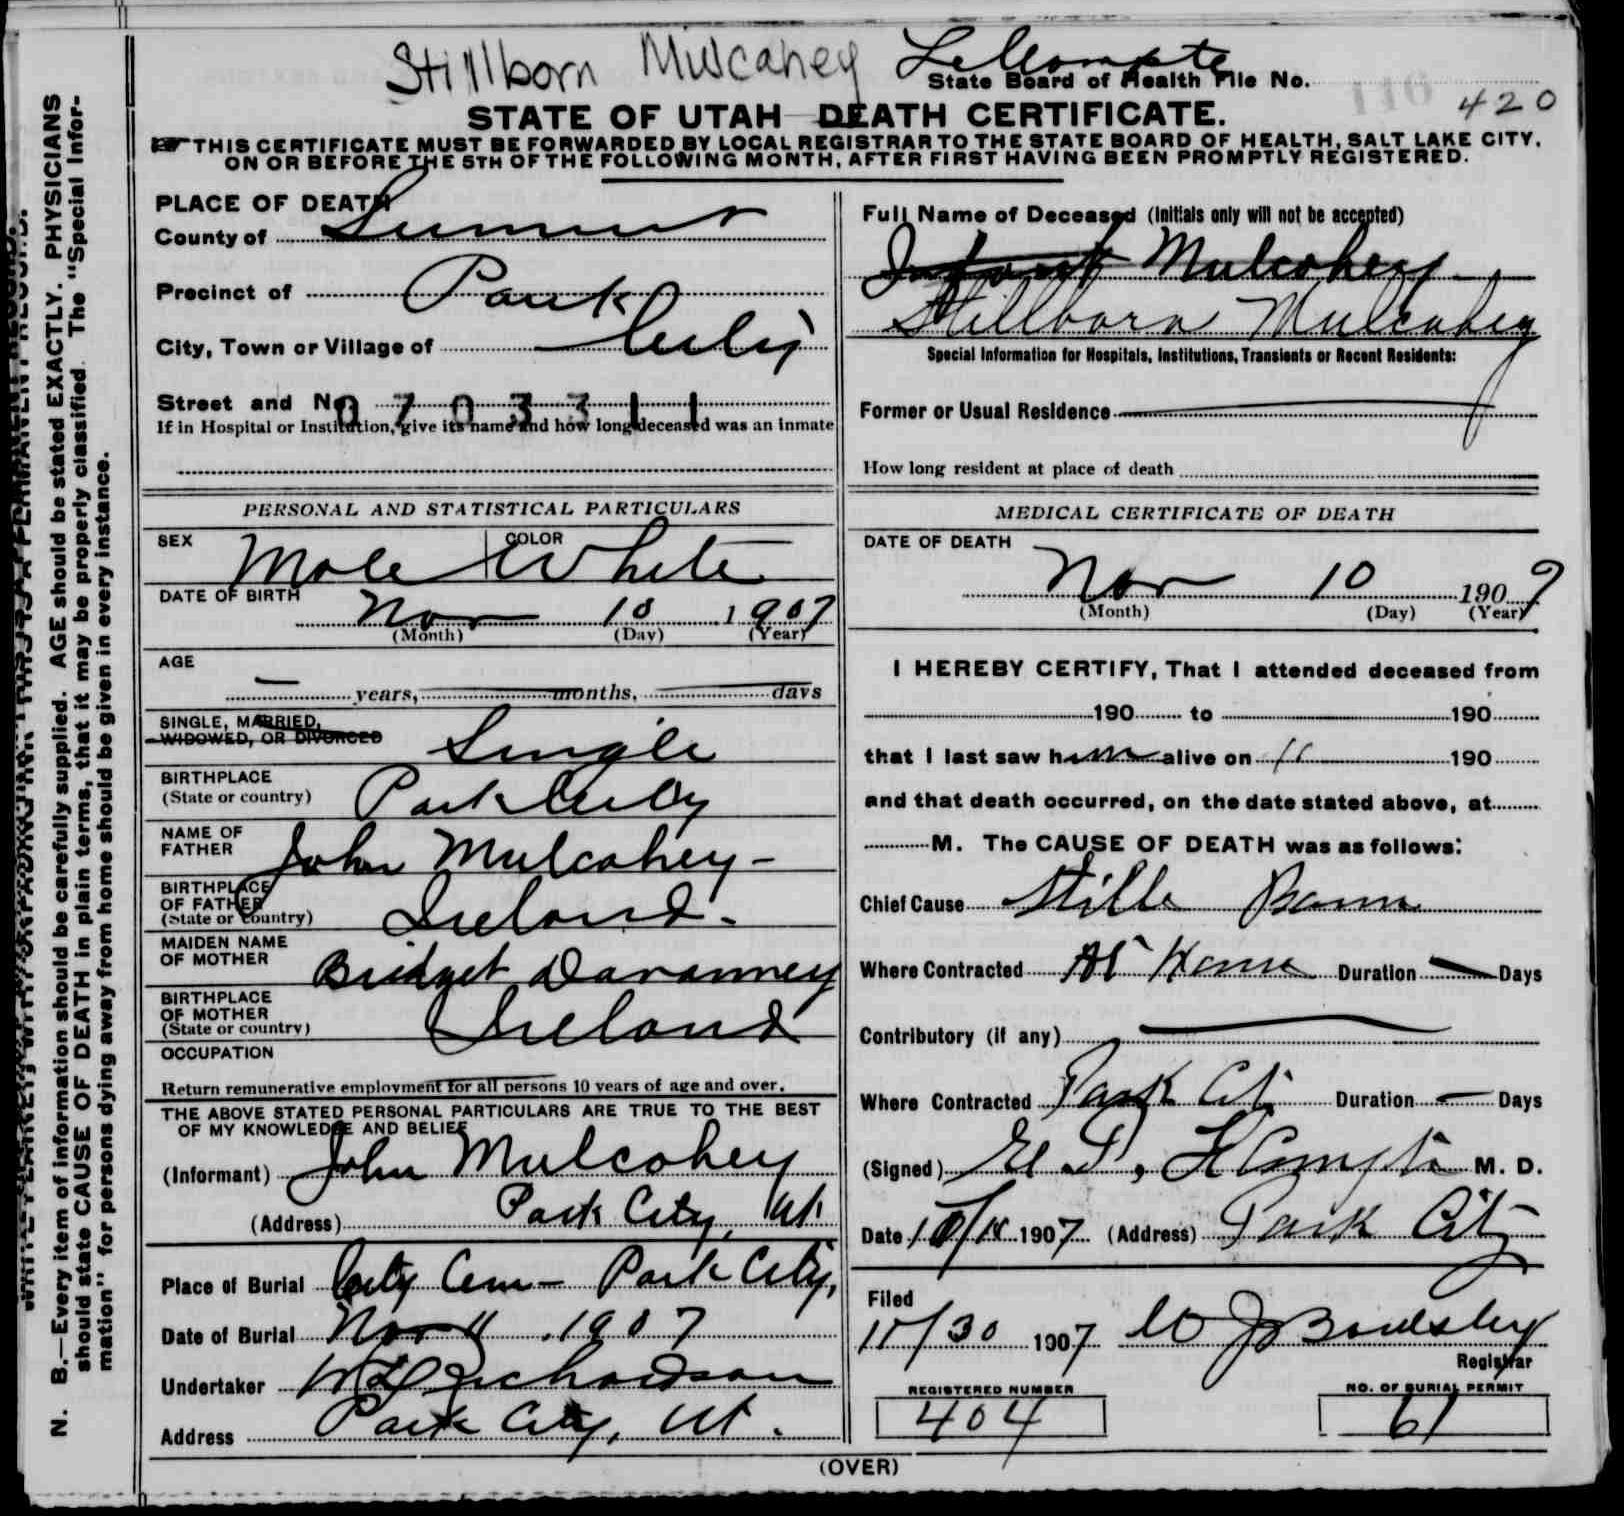 Stillborn Mulcahey LeCompte
State Board of Health File No.
420
STATE OF UTAH DEATH CERTIFICATE.
THIS CERTIFICATE MUST BE FORWARDED BY LOCAL REGISTRAR TO THE STATE BOARD OF HEALTH, SALT LAKE CITY,
ON OR BEFORE THE 5TH OF THE FOLLOWING MONTH, AFTER FIRST HAVING BEEN PROMPTLY REGISTERED.
PLACE OF DEATH
County of Summit
Precinct of Park
City, Town or Village of City
Street and No
0703311
If in Hospital or Institution, give its name and how long deceased was an inmate
Full Name of Deceased (Initials only will not be accepted)
Infant Mulcahey
Stillborn Mulcahey
Special Information for Hospitals, Institutions, Transients or Recent Residents:
Former or Usual Residence
How long resident at place of death
PERSONAL AND STATISTICAL PARTICULARS
SEX Male COLOR White
DATE OF BIRTH Nov 10 1907
(Month) (Day) (Year)
AGE
years, months, days
SINGLE, MARRIED,
WIDOWED, OR DIVORCED Single
BIRTHPLACE
(State or country) Park City
NAME OF
FATHER John Mulcahey
BIRTHPLACE
OF FATHER
(State or country) Ireland.
MAIDEN NAME
OF MOTHER Bridget Daranney
BIRTHPLACE
OF MOTHER
(State or country) Ireland
OCCUPATION
Return remunerative employment for all persons 10 years of age and over.
THE ABOVE STATED PERSONAL PARTICULARS ARE TRUE TO THE BEST
OF MY KNOWLEDGE AND BELIEF
(Informant) John Mulcahey
(Address) Park City, Ut.
Place of Burial City Cem - Park City,
Date of Burial Nov 11, 1907
Undertaker Richardson
Address Park City, Ut.
MEDICAL CERTIFICATE OF DEATH
DATE OF DEATH
Nov 10 1907
(Month) (Day) (Year)
I HEREBY CERTIFY, That I attended deceased from
190 to 190
that I last saw him alive on 190
and that death occurred, on the date stated above, at
M. The CAUSE OF DEATH was as follows:
Chief Cause Stille Born
Where Contracted At Home Duration Days
Contributory (if any)
Where Contracted Park City Duration Days
(Signed) M. D.
Date 1907 (Address) Park City
Filed
11/30 1907 Beardsley
Registrar
REGISTERED NUMBER
404
NO. OF BURIAL PERMIT
61
(OVER)
N. B.—Every item of information should be carefully supplied. AGE should be stated EXACTLY. PHYSICIANS
should state CAUSE OF DEATH in plain terms, that it may be properly classified. The "Special Infor-
mation" for persons dying away from home should be given in every instance.